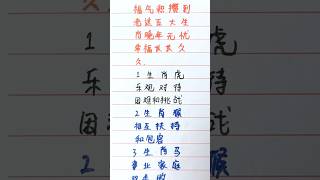 福气积攒到
老这五大生
肖晚年无忧
幸福长长久
久.
1生肖虎
乐观对待
困难和挑战
2生肖猴
相互扶持
和包容
3生肖马
事业家庭